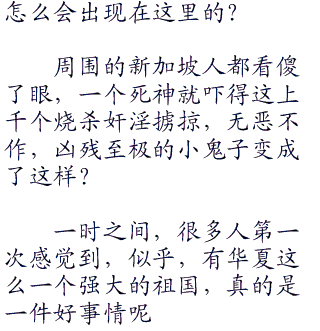 怎么会出现在这里的？
周围的新加坡人都看傻
了眼，一个死神就吓得这上
千个烧杀奸淫掳掠，无恶不
作，凶残至极的小鬼子变成
了这样？
一时之间，很多人第一
次感觉到，似乎，有华夏这
么一个强大的祖国，真的是
一件好事情呢